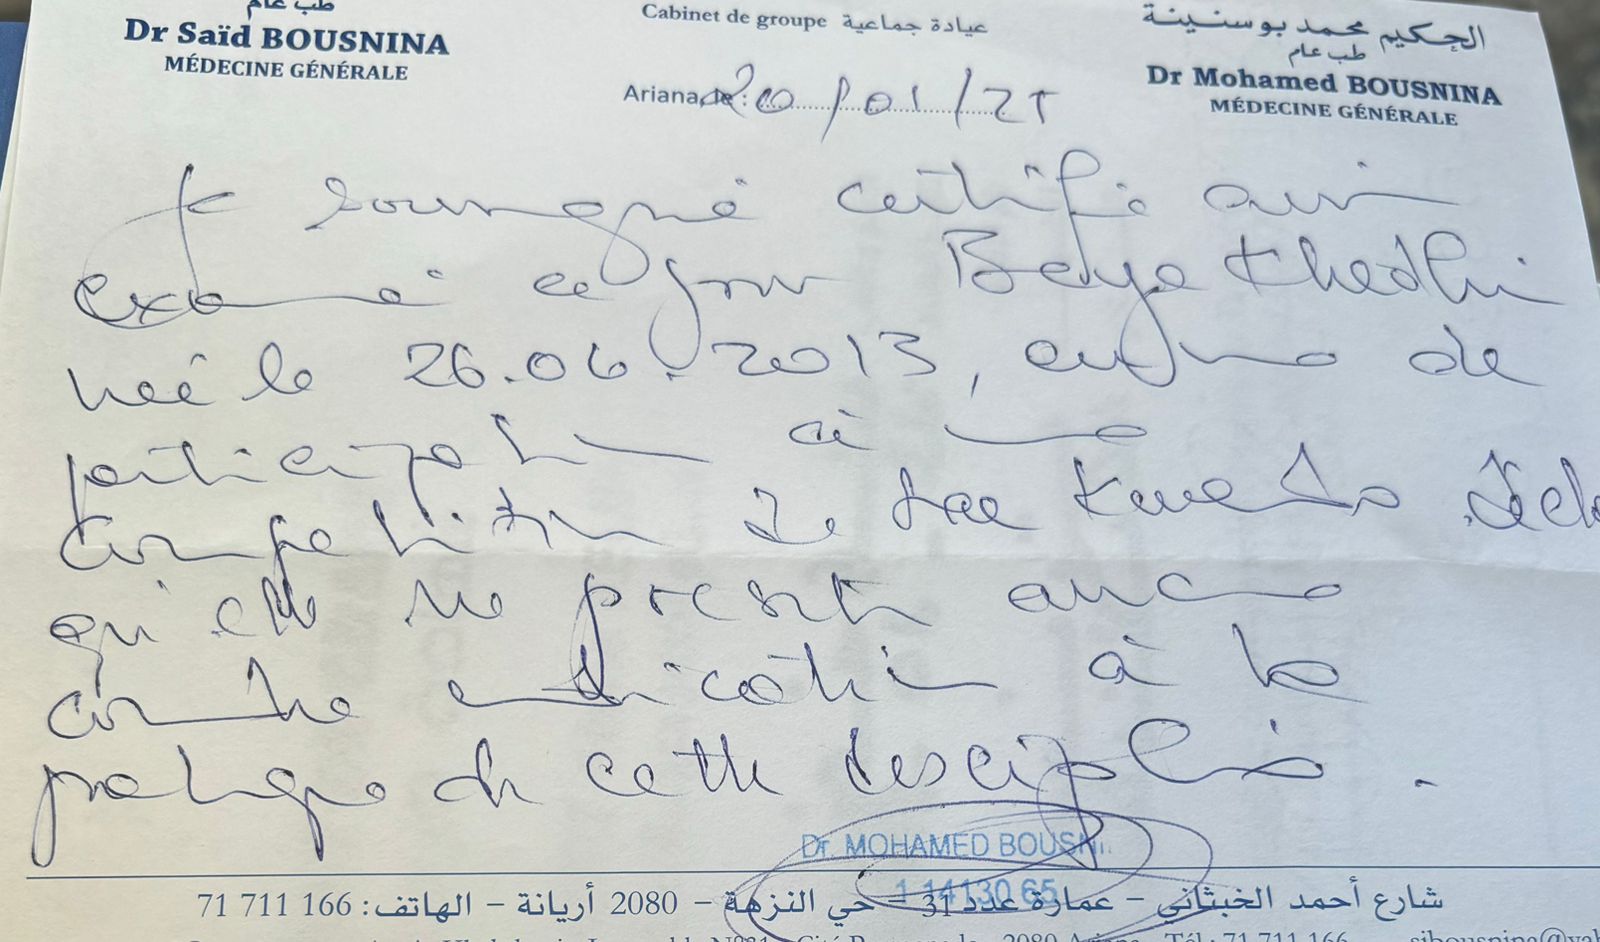 طب عام
Dr Saïd BOUSNINA
MÉDECINE GÉNÉRALE
Cabinet de groupe عيادة جماعية
الحكيم محمد بوسنينة
طب عام
Dr Mohamed BOUSNINA
MÉDECINE GÉNÉRALE
Ariana, le : 20/01/25
Je soussigné certifie avoir
examiné ce jour Beya Khedhiri
née le 26.06.2013, en vue de
participation à une
compétition de tae kwendo
qu'elle ne présente aucune
contre indication à la
pratique de cette discipline.
Dr. MOHAMED BOUSNI
1 14130 65
شارع أحمد الخبثاني – عمارة عدد 31 – حي النزهة – 2080 أريانة – الهاتف: 166 711 71
2080 Ariana - Tél : 71 711 166